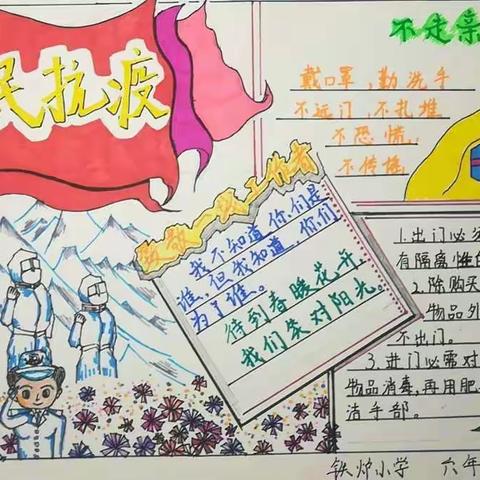 民抗疫
不走亲
戴口罩,勤洗手
不远门,不扎堆
不恐慌,
不传谣。
致敬一线工作者
我不知道你们是
谁,但我知道,你们
为了谁。
待到春暖花开,
我们笑对阳光。
1.出门必须
有隔离性的
2.除购买
物品外
不出门。
3.进门必需对
物品消毒,再用肥
清手部。
铁炉小学 六年